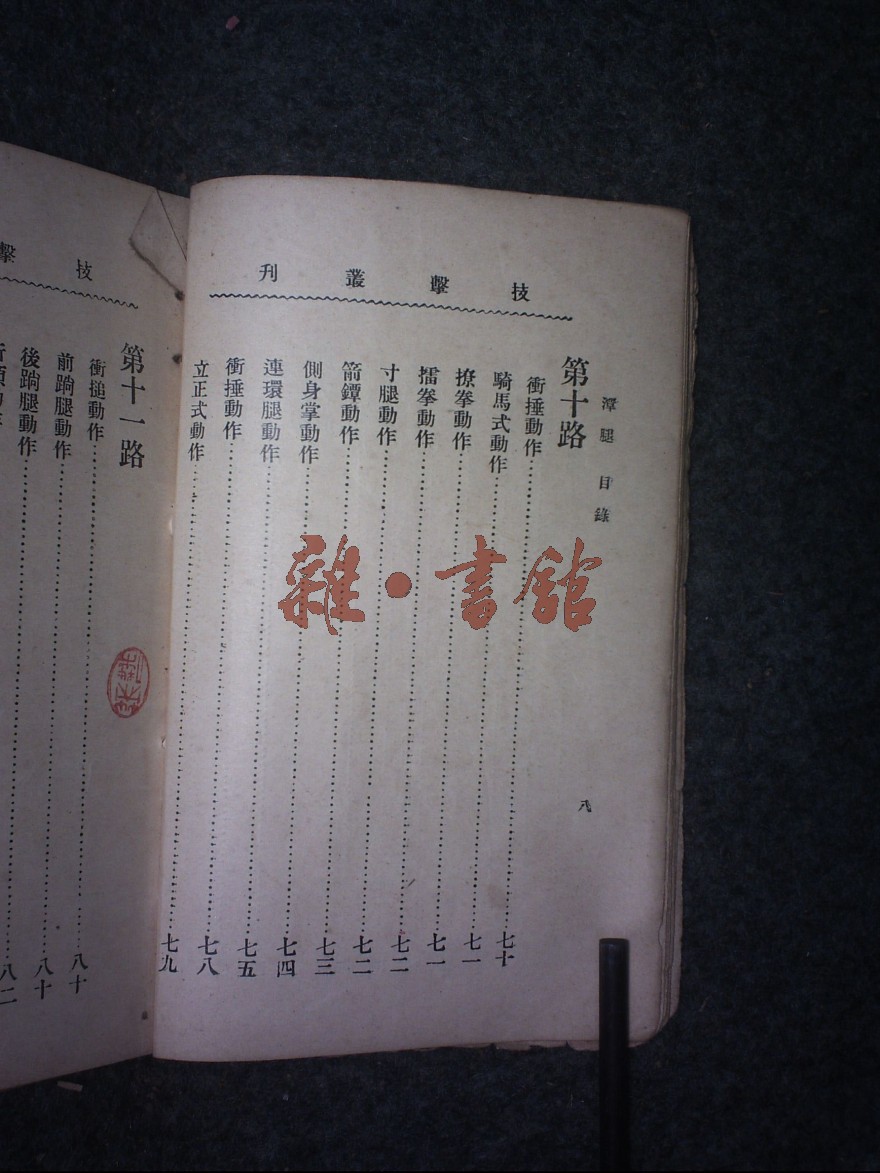 技擊叢刊
潭腿目錄
八
第十路
衝捶動作……七十
騎馬式動作……七一
撩拳動作……七一
擂拳動作……七二
寸腿動作……七二
箭鐔動作……七三
側身掌動作……七四
連環腿動作……七五
衝捶動作……七八
立正式動作……七九
技擊
第十一路
衝搥動作……八十
前腿動作……八十
後腿動作……八二
雜·書館